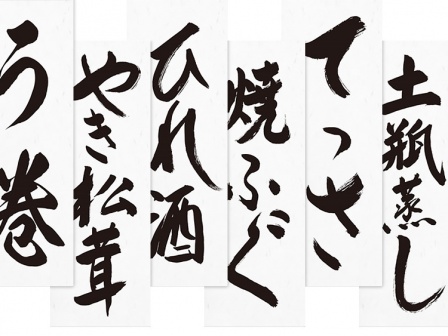 土瓶蒸し
てっさ
焼ふぐ
ひれ酒
やき松茸
う巻